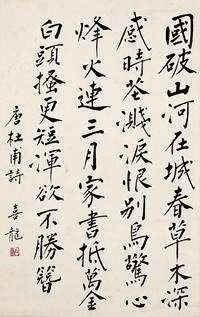 國破山河在城春草木深
感時花濺淚恨別鳥驚心
烽火連三月家書抵萬金
白頭搔更短渾欲不勝簪
唐杜甫詩
喜龍